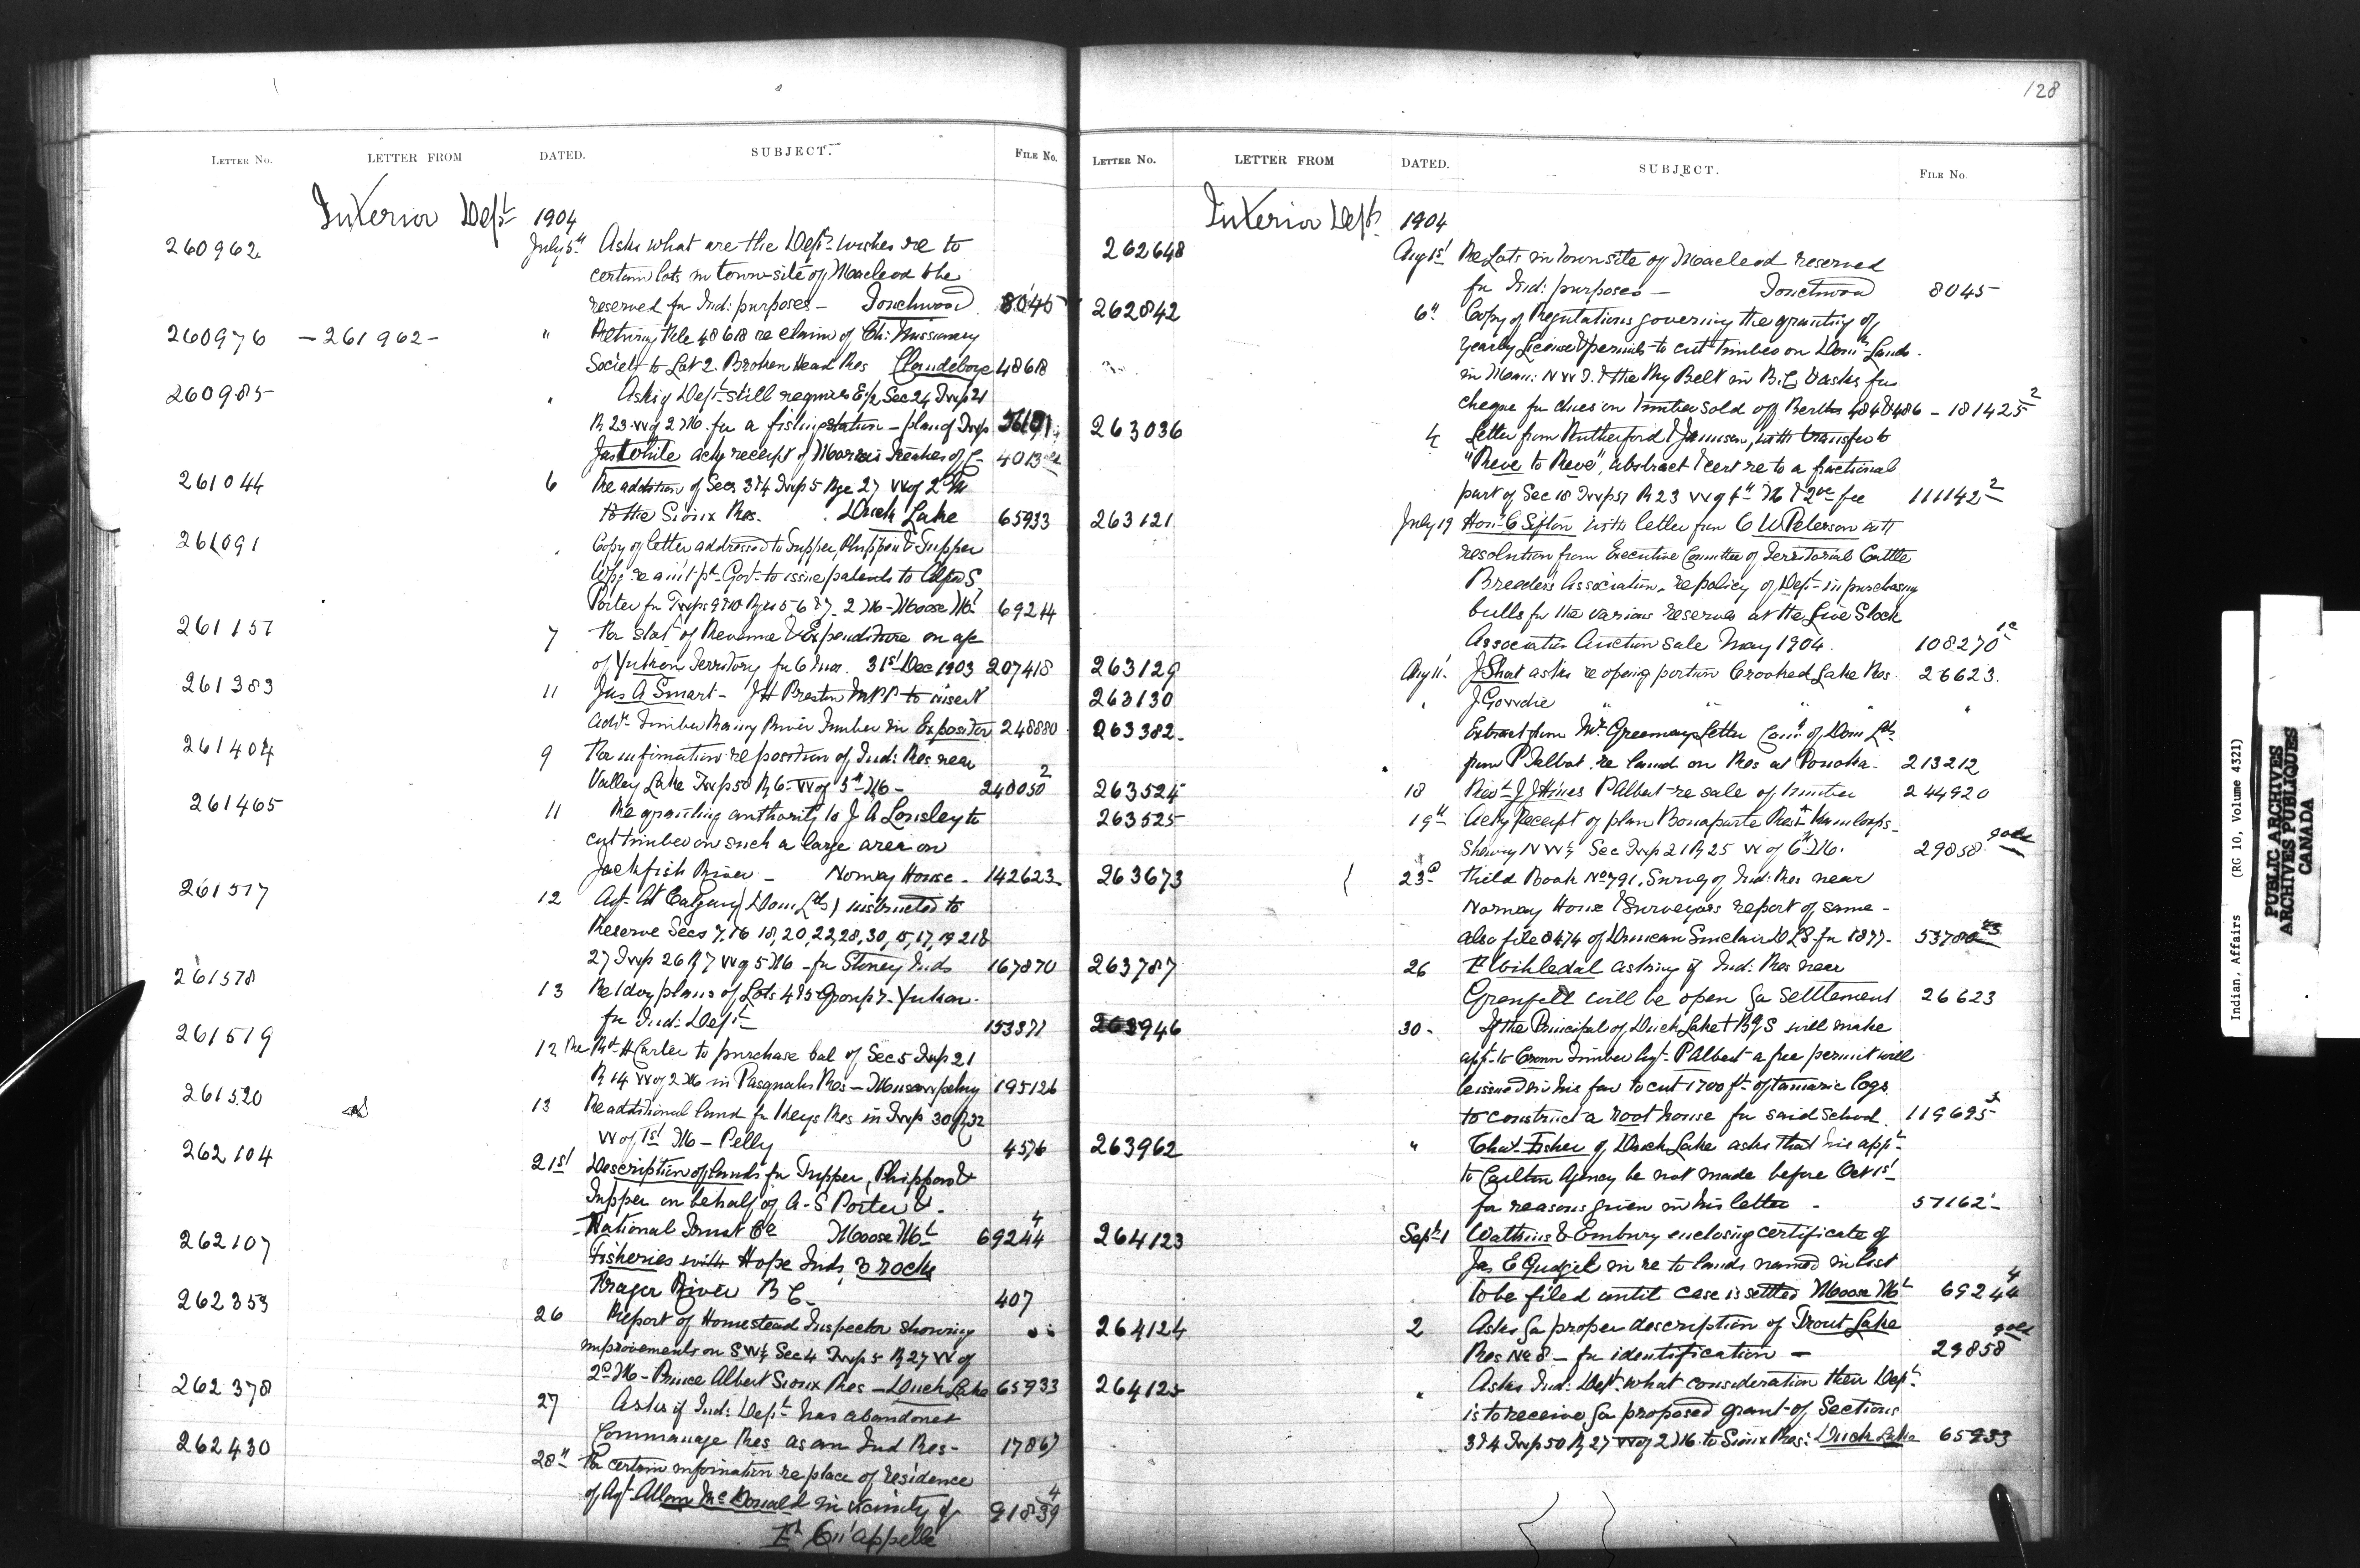 128
LETTER NO. LETTER FROM DATED. SUBJECT. FILE NO.
Interior Dept 1904
260962 July 5th Asks what are the Dept's wishes re to
certain lots in town-site of Macleod to be
reserved for Ind: purposes -
8045
260976 - 261962 - " Returning File 48618 re claim of Ch: Missionary
Society to Lot 2. Broken Head Res Clandeboye 48618
260985 " Ask if Dept still requires E½ Sec 24 Twp 21
R 23. W of 2 M. for a fishing station - plan of Twp
Jas White ackg receipt of Morris Treaties of C - 4013
261044 6 Re addition of Secs 3&4 Twp 5 Rge 27 W of 2nd M
to the Sioux Res. Duck Lake 65933
261091 " Copy of letter addressed to Tupper, Phippen & Tupper
Wpg re Govt to issue patents to S
Porter for Twps 9&10 Rges 5 6 & 7. 2 M - Moose Mt 69244
261151 7 For stat of Revenue & Expenditure on a/c
of Yukon Territory for 6 mos. 31st Dec 1903 207418
261383 11 Jas A Smart - J H Preston MPP to insert
Advt Timber Rainy River Timber in Expositor 248880
261404 9 For information re position of Ind: Res near
Valley Lake Twp 50 R 6 - W of 5th M - 240050 2
261465 11 Re granting authority to J A Lousley to
cut timber on such a large area on
Jackfish River - Norway House - 142623
261517 12 Agt at Calgary (Dom Lds) instructed to
Reserve Secs 7, 16 18, 20, 22, 28, 30, 15, 17, 19 21&
27 Twp 26 R 7 W of 5 M - for Stoney Inds 167870
261518 13 plans of Lots 4&5 Group 7 - Yukon -
for Ind: Dept 153371
261519 12 Re Rt H Carter to purchase bal of Sec 5 Twp 21
R 14 W of 2 M in Pasquahs Res - Muscowpetung 195126
261520 13 Re additional land for Keys Res in Twp 30 R 32
W of 1st M - Pelly 4576
262104 21st Description of lands for Tupper, Phippen &
Tupper on behalf of A. S Porter &
National Trust Co Moose Mt 69244 4
262107 Fisheries with Hope Inds, 3 rocks
Fraser River B C - 407
262353 26 Report of Homestead Inspector showing
improvements on SW¼ Sec 4 Twp 5 R 27 W of
2nd M - Prince Albert Sioux Res - Duck Lake 65933
262378 27 Asks if Ind: Dept has abandoned
Commanage Res as an Ind Res - 17867
262430 28th For certain information re place of residence
of Agt Allan McDonald in vicinity of 91839 4
Ft Qu'appelle
LETTER NO. LETTER FROM DATED. SUBJECT. FILE NO.
Interior Dept 1904
262648 Aug 1st Re Lots in Townsite of Macleod reserved
for Ind: purposes - 8045
262842 6th Copy of Regulations governing the granting of
yearly License & permits to cut timber on Dom Lands -
in Man: N W T. & the Ry Belt in B. C & asks for
cheque for dues on timber sold off Berths 484 & 486 - 181425 2
263036 4 Letter from Rutherford & Jamieson, with transfer to
"Reve to Reve", abstract & cert re to a fractional
part of Sec 18 Twp 51 R 23 W of 4th M & 2 00 fee 111142 2
263121 July 19 Hon: C Sifton with letter from C W Peterson with
resolution from Executive Committee of Territorial Cattle
Breeders Association, re policy of Dept in purchasing
bulls for the various reserves at the Live Stock
Association Auction sale May 1904. 108270
263129 Aug 11. J Short asks re opening portion Crooked Lake Res. 26623.
263130 " J Gowdie " " " "
263382 Extract from Mr Greenways Letter Comr of Dom Lds
from P Talbot re land on Res at Ponoka - 213212
263524 18 Revd J J Hines P Albert re sale of timber 244920
263525 19th Ackg Receipt of plan Bonaparte Res Kamloops -
Showing NW¼ Sec Twp 21 R 25 W of 6th M. 29858
263673 23rd Field Book No 791, Survey of Ind: Res near
Norway House & Surveyors report of same -
also file 8474 of Duncan Sinclair D L S for 1877 - 53780
263787 26 asking if Ind: Res near
Grenfell will be open for settlement 26623
263946 30 - If the Principal of Duck Lake Bdg S will make
appn to Crown Timber Agt - P Albert a free permit will
be issued in his favor to cut 1700 ft of tamarac logs
to construct a root house for said school. 119695 3
263962 " Chas Fisher of Duck Lake asks that his appt
to Carlton Agency be not made before Oct 1st
for reasons given in his letter - 57162
264123 Sept 1 Watkins & Embury enclosing certificate of
Jas E Gudgel in re to lands named in list
to be filed until case is settled Moose Mt 69244 4
264124 2 Asks for proper description of Trout Lake
Res No 8 - for identification - 29858
264125 " Asks Ind: Dept. what consideration their Dept.
is to receive for proposed grant of Sections
3&4 Twp 50 R 27 W of 2 M. to Sioux Res: Duck Lake 65933
Indian Affairs (RG 10, Volume 4321)
PUBLIC ARCHIVES
ARCHIVES PUBLIQUES
CANADA